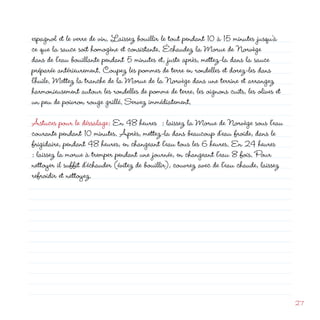 espagnol et le verre de vin. Laissez bouillir le tout pendant 10 à 15 minutes jusqu'à
ce que la sauce soit homogène et consistante. Échaudez la Morue de Norvège
dans de l'eau bouillante pendant 5 minutes et, juste après, mettez-la dans la sauce
préparée antérieurement. Coupez les pommes de terre en rondelles et dorez-les dans
l'huile. Mettez la tranche de la Morue de la Norvège dans une terrine et arrangez
harmonieusement autour les rondelles de pomme de terre, les oignons cuits, les olives et
un peu de poivron rouge grillé. Servez immédiatement.
Astuces pour le désalage: En 48 heures : laissez la Morue de Norvège sous l'eau
courante pendant 10 minutes. Après, mettez-la dans beaucoup d'eau froide, dans le
frigidaire, pendant 48 heures, en changeant l'eau tous les 6 heures. En 24 heures
: laissez la morue à tremper pendant une journée, en changeant l'eau 8 fois. Pour
nettoyer il suffit d'échauder (évitez de bouillir), couvrez avec de l'eau chaude, laissez
refroidir et nettoyez.
27